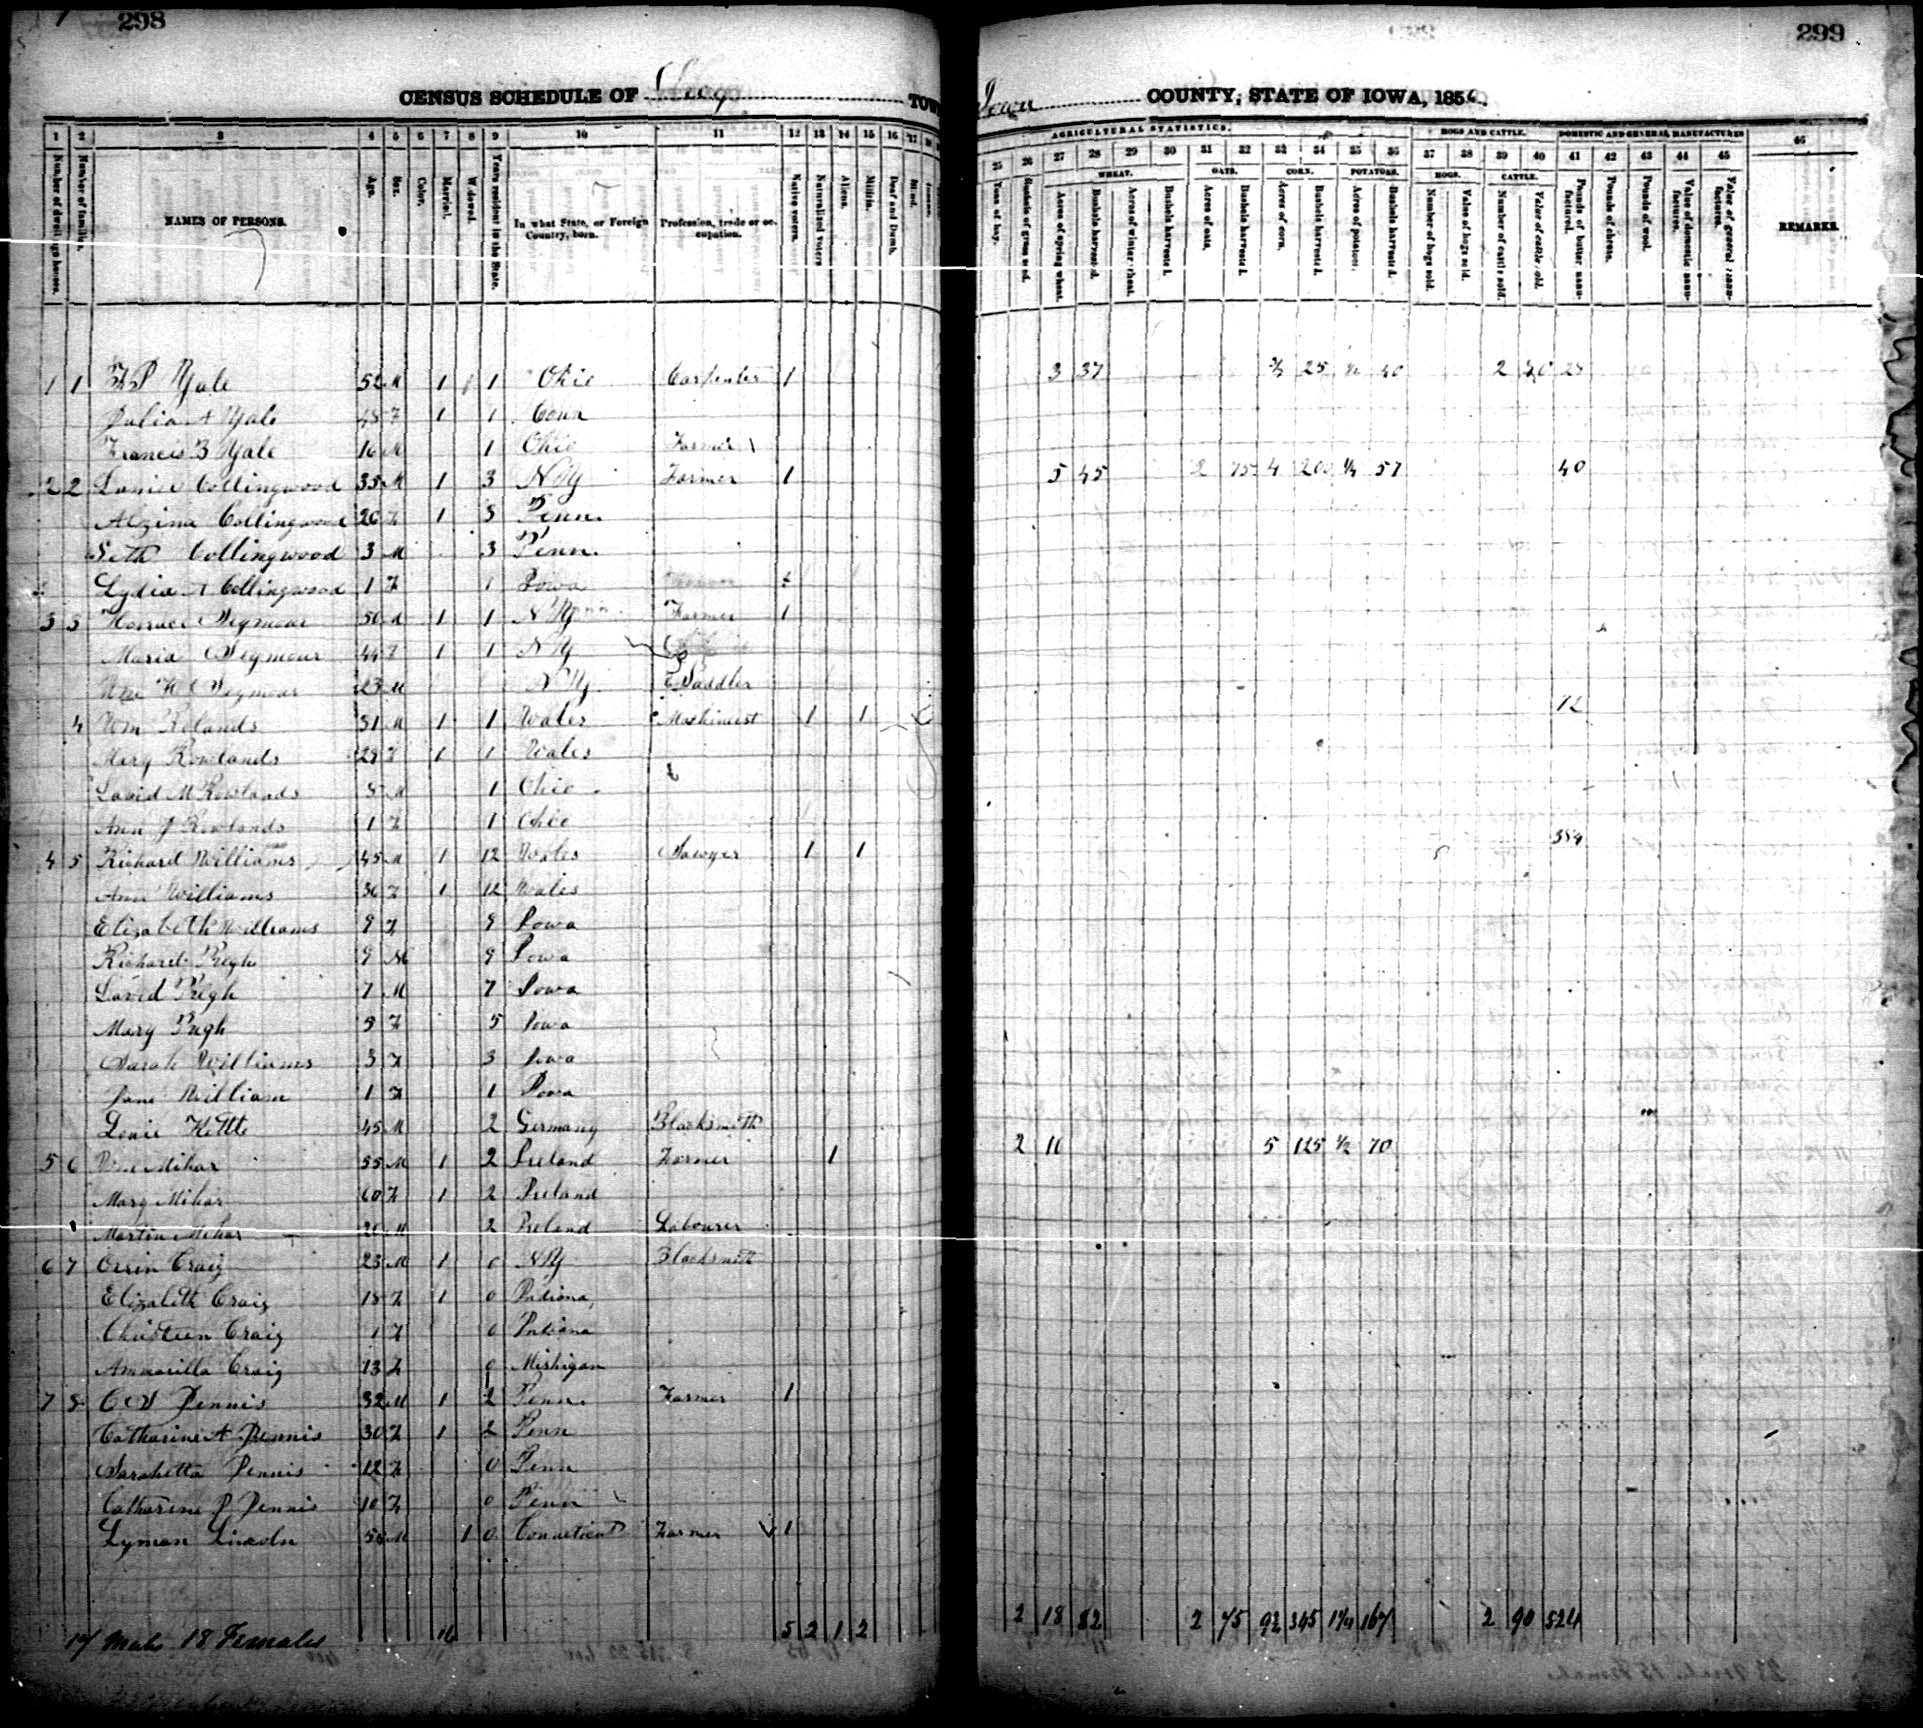 298
299
CENSUS SCHEDULE OF Troy TOWN
Iowa COUNTY, STATE OF IOWA, 1856.
1 2 3 4 5 6 7 8 9 10 11 12 13 14 15 16 17
Number of dwelling houses. Number of families. NAMES OF PERSONS. Age. Sex. Color. Married. Widowed. Years resident in the State. In what State, or Foreign Country, born. Profession, trade or occupation. Native voters. Naturalized voters Aliens. Militia. Deaf and Dumb. Blind.
AGRICULTURAL STATISTICS. HOGS AND CATTLE. DOMESTIC AND GENERAL MANUFACTURES
25 26 27 28 29 30 31 32 33 34 35 36 37 38 39 40 41 42 43 44 45 46
WHEAT. OATS. CORN. POTATOES. HOGS. CATTLE.
Tons of hay. Bushels of grass seed. Acres of spring wheat. Bushels harvested. Acres of winter wheat. Bushels harvested. Acres of oats. Bushels harvested. Acres of corn. Bushels harvested. Acres of potatoes. Bushels harvested. Number of hogs sold. Value of hogs sold. Number of cattle sold. Value of cattle sold. Pounds of butter manufactured. Pounds of cheese. Pounds of wool. Value of domestic manufactures. Value of general manufactures. REMARKS.
1 1 Yale 52 M 1 1 Ohio Carpenter 1 3 37 25 40 2
Julia A Yale 48 F 1 1 Conn
Francis B Yale 16 M 1 Ohio Farmer
2 2 Collingwood 35 M 1 3 N Y Farmer 1 5 45 2 75 4 200 1/4 57 40
Alzina Collingwood 26 F 1 3 Penn.
Seth Collingwood 3 M 3 Penn.
Lydia A Collingwood 1 F 1 Iowa
3 3 Horace Seymour 50 M 1 1 N Y Farmer 1
Maria Seymour 44 F 1 1 N Y
Wm H Seymour 23 M N Y Saddler
4 Wm Rolands 31 M 1 1 Wales Machineist 1 1 12
Mary Rowlands 29 F 1 1 Wales
David M Rowlands M 1 Ohio
Ann J Rowlands 1 F 1 Ohio
4 5 Richard Williams 45 M 1 12 Wales Sawyer 1 1
Ann Williams 36 F 1 12 Wales
Elizabeth Williams 9 F 9 Iowa
Richard Pugh 9 M 9 Iowa
David Pugh 7 M 7 Iowa
Mary Pugh 5 F 5 Iowa
Sarah Williams 3 F 3 Iowa
Jane William 1 F 1 Iowa
45 M 2 Germany Blacksmith
5 6 Mihar 55 M 1 2 Ireland Farmer 1 2 10 5 125 1/2 70
Mary Mihar 60 F 1 2 Ireland
Martin Mihar 20 M 2 Ireland Labourer
6 7 Orrin Craig 23 M 1 0 N Y Blacksmith
Elizabeth Craig 18 F 1 0 Indiana
Christeen Craig 1 F 0 Indiana
Ammarilla Craig 13 F 0 Mishigan
7 8 Dennis 32 M 1 2 Penn. Farmer 1
Catharine A Dennis 30 F 1 2 Penn
Sarahetta Dennis 12 F 0 Penn
Catharine Dennis 10 F 0 Penn
Lyman Lincoln M 1 0 Farmer 1
17 Males 18 Females 16 5 2 1 2 2 18 82 2 75 345 1 1/4 167 2 90 524